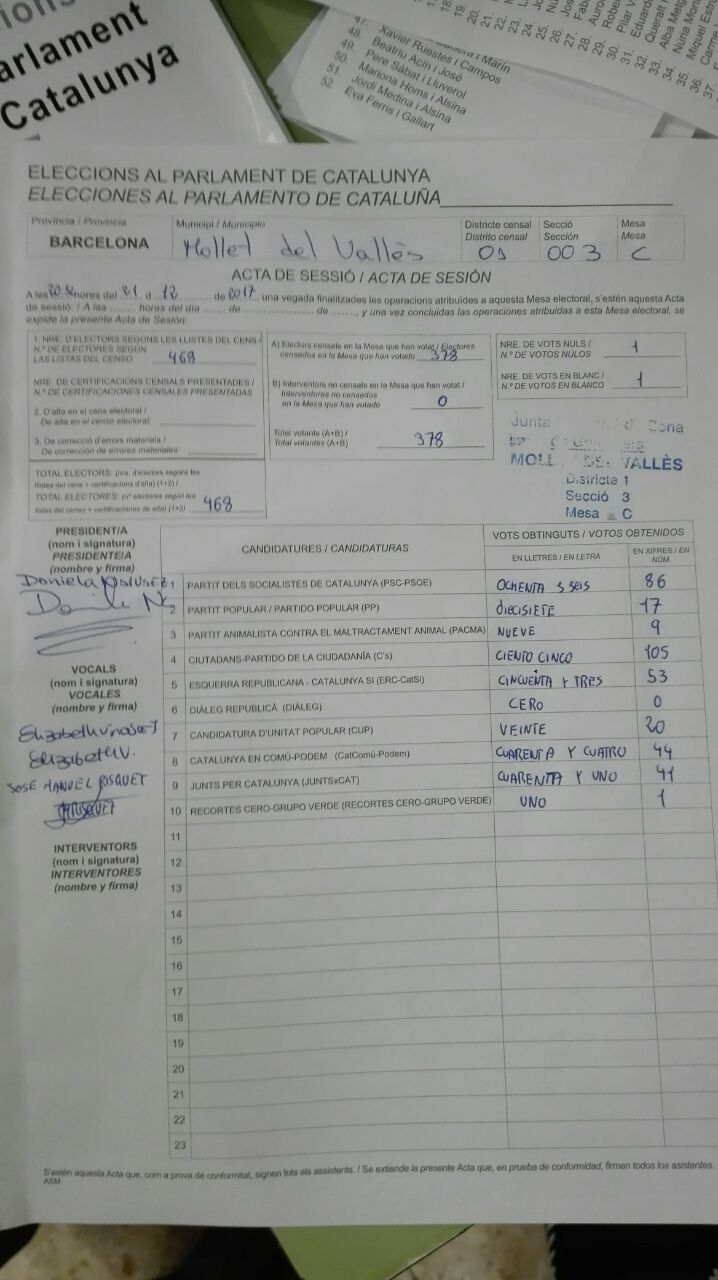 arlament
Catalunya
47. Xavier Ruestes i Campos
48. Beatriu Acin i José
49. Pere Sàbat i Lluverol
50. Mariona Homs i Alsina
51. Jordi Medina i Alsina
52. Eva Ferris i Gallart
ELECCIONS AL PARLAMENT DE CATALUNYA
ELECCIONES AL PARLAMENTO DE CATALUÑA
Província / Provincia
BARCELONA
Municipi / Municipio
Mollet del Vallès
Districte censal
Distrito censal
01
Secció
Sección
003
Mesa
Mesa
C
ACTA DE SESSIÓ / ACTA DE SESIÓN
A les 20 hores del 21 d 12 de 2017, una vegada finalitzades les operacions atribuïdes a aquesta Mesa electoral, s'estén aquesta Acta
de sessió: / A las ........ horas del día ........ de ........ de ........, y una vez concluidas las operaciones atribuidas a esta Mesa electoral, se
expide la presente Acta de Sesión:
1. NRE. D'ELECTORS SEGONS LES LLISTES DEL CENS /
N.º DE ELECTORES SEGÚN
LAS LISTAS DEL CENSO 468
NRE. DE CERTIFICACIONS CENSALS PRESENTADES /
N.º DE CERTIFICACIONES CENSALES PRESENTADAS
2. D'alta en el cens electoral /
De alta en el censo electoral:
3. De correcció d'errors materials /
De corrección de errores materiales:
TOTAL ELECTORS: (nre. d'electors segons les
llistes del cens + certificacions d'alta) (1+2) /
TOTAL ELECTORES: (nº electores según las
listas del censo + certificaciones de alta) (1+2) 468
A) Electors censats en la Mesa que han votat / Electores
censados en la Mesa que han votado 378
B) Interventors no censats en la Mesa que han votat /
Interventores no censados
en la Mesa que han votado 0
Total votants (A+B) /
Total votantes (A+B) 378
NRE. DE VOTS NULS /
N.º DE VOTOS NULOS 1
NRE. DE VOTS EN BLANC /
N.º DE VOTOS EN BLANCO 1
Junta de Zona
MOLLET DEL VALLÈS
Districte 1
Secció 3
Mesa C
PRESIDENT/A
(nom i signatura)
PRESIDENTE/A
(nombre y firma)
Daniela
VOCALS
(nom i signatura)
VOCALES
(nombre y firma)
Elizabeth V.
JOSE MANUEL RISQUET
INTERVENTORS
(nom i signatura)
INTERVENTORES
(nombre y firma)
CANDIDATURES / CANDIDATURAS
VOTS OBTINGUTS / VOTOS OBTENIDOS
EN LLETRES / EN LETRA
EN XIFRES / EN NÚM.
1 PARTIT DELS SOCIALISTES DE CATALUNYA (PSC-PSOE) OCHENTA Y SEIS 86
2 PARTIT POPULAR / PARTIDO POPULAR (PP) DIECISIETE 17
3 PARTIT ANIMALISTA CONTRA EL MALTRACTAMENT ANIMAL (PACMA) NUEVE 9
4 CIUTADANS-PARTIDO DE LA CIUDADANÍA (C's) CIENTO CINCO 105
5 ESQUERRA REPUBLICANA - CATALUNYA SÍ (ERC-CatSí) CINCUENTA Y TRES 53
6 DIÀLEG REPUBLICÀ (DIÀLEG) CERO 0
7 CANDIDATURA D'UNITAT POPULAR (CUP) VEINTE 20
8 CATALUNYA EN COMÚ-PODEM (CatComú-Podem) CUARENTA Y CUATRO 44
9 JUNTS PER CATALUNYA (JUNTSxCAT) CUARENTA Y UNO 41
10 RECORTES CERO-GRUPO VERDE (RECORTES CERO-GRUPO VERDE) UNO 1
11
12
13
14
15
16
17
18
19
20
21
22
23
S'estén aquesta Acta que, com a prova de conformitat, signen tots els assistents. / Se extiende la presente Acta que, en prueba de conformidad, firman todos los asistentes.
ASM